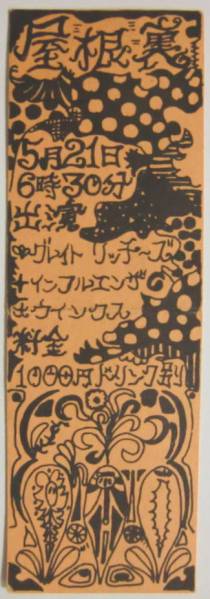 屋根裏
5月21日
6時30分
出演
グレイト リッチーズ
インフルエンザ
ウインクス
料金
1000円 ドリンク別